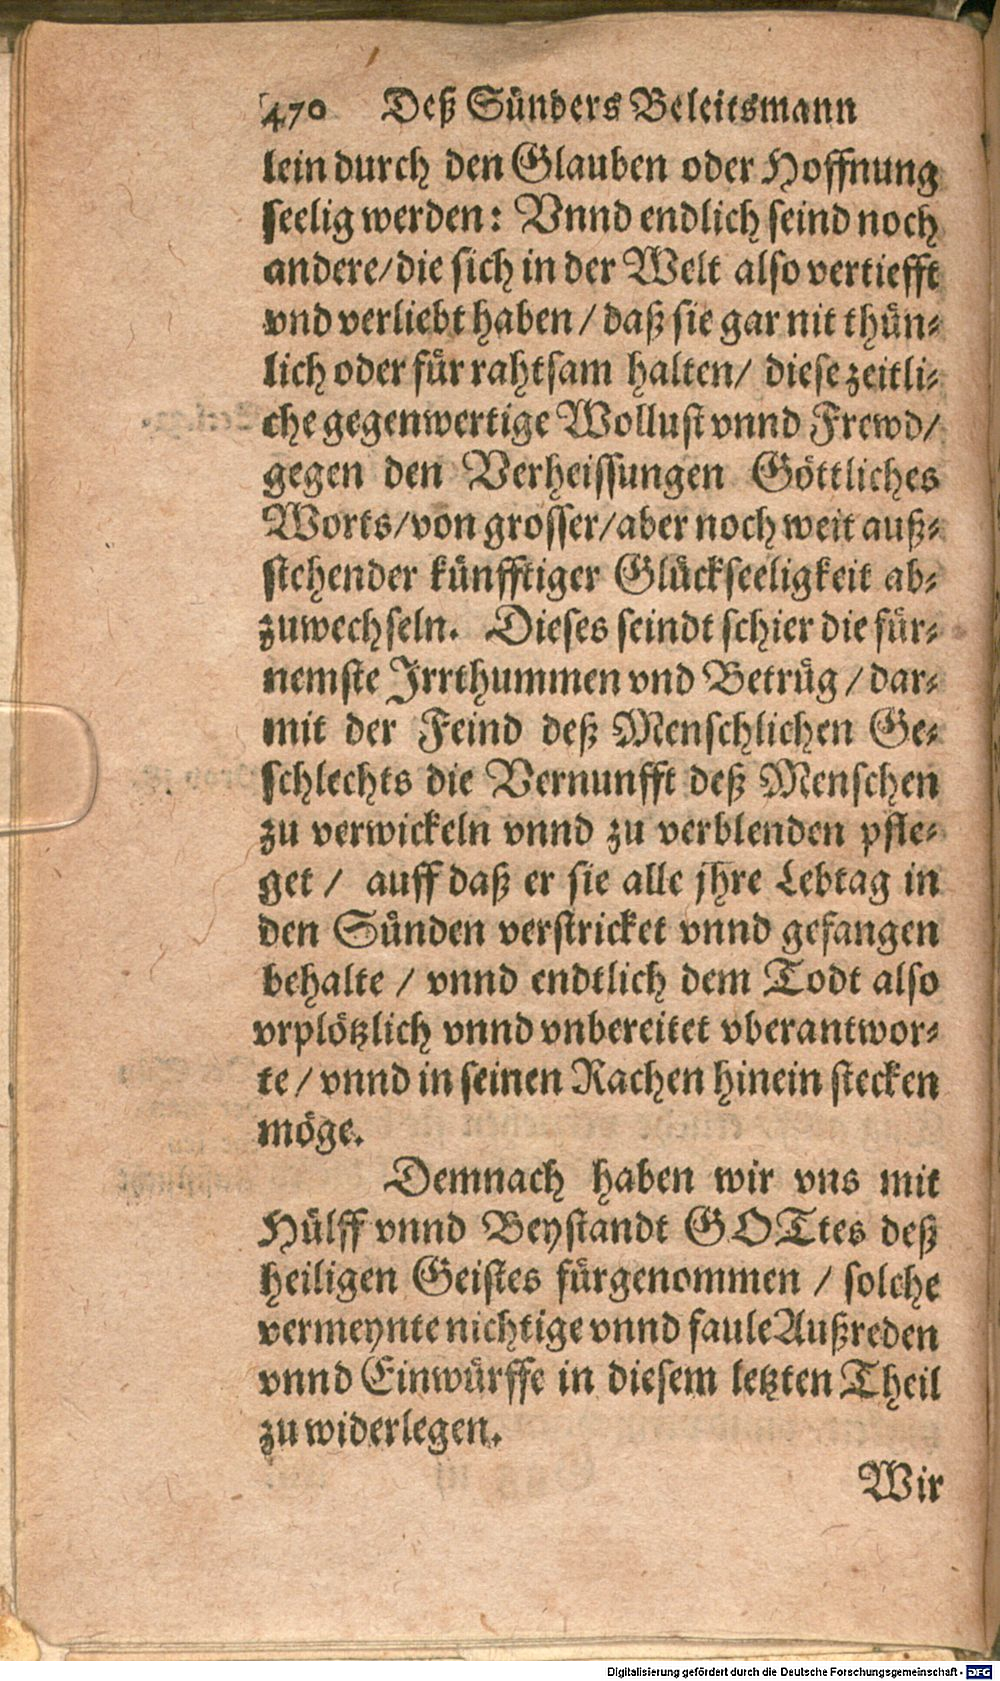 470 Deß Sünders Beleitsmann
lein durch den Glauben oder Hoffnung
seelig werden: Vnnd endlich seind noch
andere/die sich in der Welt also vertiefft
vnd verliebt haben / daß sie gar nit thün-
lich oder für rahtsam halten/ diese zeitli-
che gegenwertige Wollust vnnd Frewd/
gegen den Verheissungen Göttliches
Worts/von grosser/aber noch weit auß-
stehender künfftiger Glückseeligkeit ab-
zuwechseln. Dieses seindt schier die für-
nemste Irrthummen vnd Betrüg / dar-
mit der Feind deß Menschlichen Ge-
schlechts die Vernunfft deß Menschen
zu verwickeln vnnd zu verblenden pfle-
get / auff daß er sie alle jhre Lebtag in
den Sünden verstricket vnnd gefangen
behalte / vnnd endtlich dem Todt also
vrplötzlich vnnd vnbereitet vberantwor-
te / vnnd in seinen Rachen hinein stecken
möge.
Demnach haben wir vns mit
Hülff vnnd Beystandt GOTtes deß
heiligen Geistes fürgenommen / solche
vermeynte nichtige vnnd faule Außreden
vnnd Einwürffe in diesem letzten Theil
zu widerlegen.
Wir
Digitalisierung gefördert durch die Deutsche Forschungsgemeinschaft - DFG